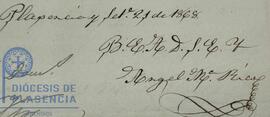 Plasencia y Set.e 21 de 1868.
B. E. A. D. S. E. Y
Angel M.a
DIÓCESIS DE
PLASENCIA